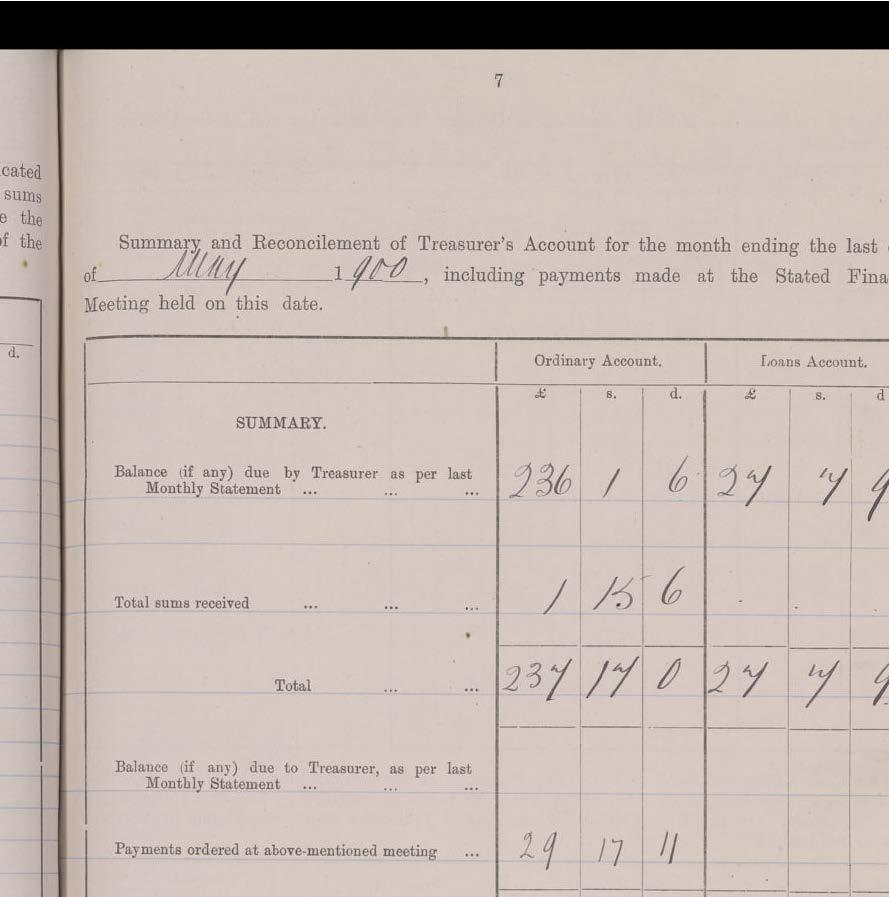 7
cated
sums
e the
of the
d.
Summary and Reconcilement of Treasurer's Account for the month ending the last
of May 1900, including payments made at the Stated Fina
Meeting held on this date.
Ordinary Account. Loans Account.
£ s. d. £ s. d
SUMMARY.
Balance (if any) due by Treasurer as per last
Monthly Statement ... ... ... 236 1 6 27 7 9
Total sums received ... ... ... 1 15 6 . . .
Total ... ... 237 17 0 27 7 9
Balance (if any) due to Treasurer, as per last
Monthly Statement ... ... ...
Payments ordered at above-mentioned meeting ... 29 17 11